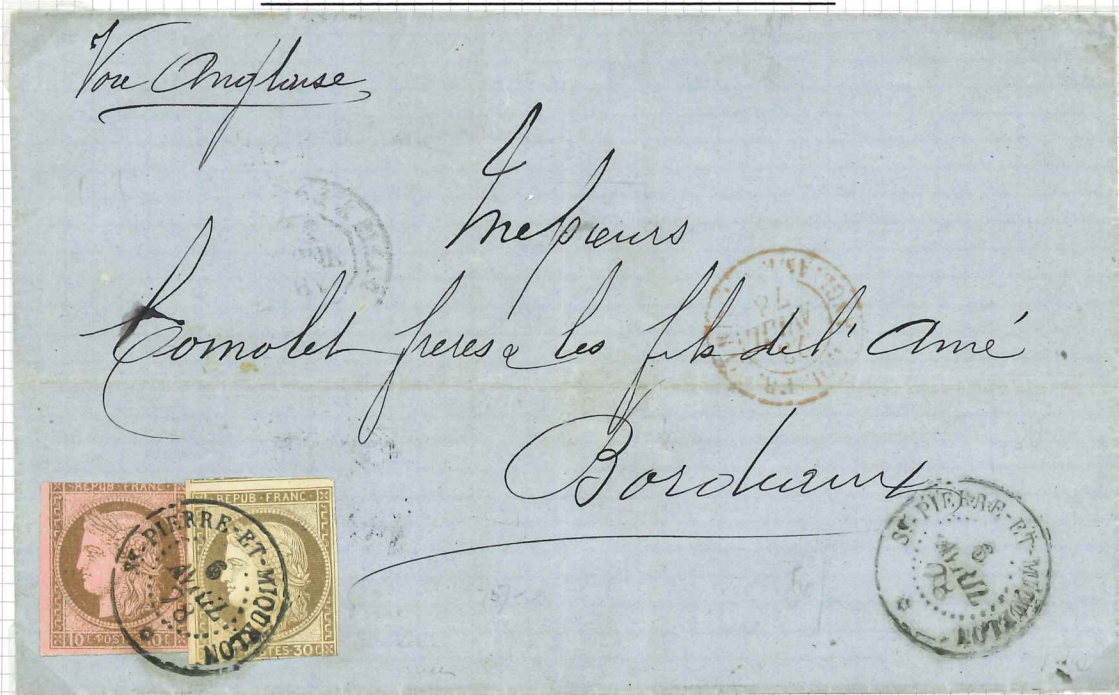 Voie Anglaise
Messieurs
Comolet frères & les fils de l'Ainé
Bordeaux
REPUB·FRANC·
10 C·POSTES·10C·
REPUB·FRANC·
POSTES·30C·
ST-PIERRE-ET-MIQUELON
6
AVRIL
78
ST-PIERRE-ET-MIQUELON
6
AVRIL
78